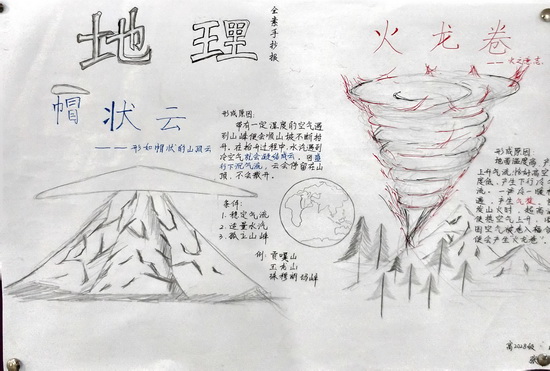 地理
全素手抄报
帽状云
——形如帽状的山顶云
形成原因:
带有一定湿度的空气遇
到山峰便会顺山坡不断抬
升,在抬升过程中,水汽遇到
冷空气就会凝结成云,因
行下沉气流,云会停留在山
顶,不会散开。
条件:
1. 稳定气流
2. 适量水汽
3. 孤立山峰
例:贡嘎山
玉龙山
火龙卷
形成原因:
地面温度高
上升气流,恰好高空
度低,产生下行冷
流,一声冷一暖
遇,产生气旋,
发山火时,超高
使热空气上升,
因空气被卷入
便会产生火龙卷。
高2023级